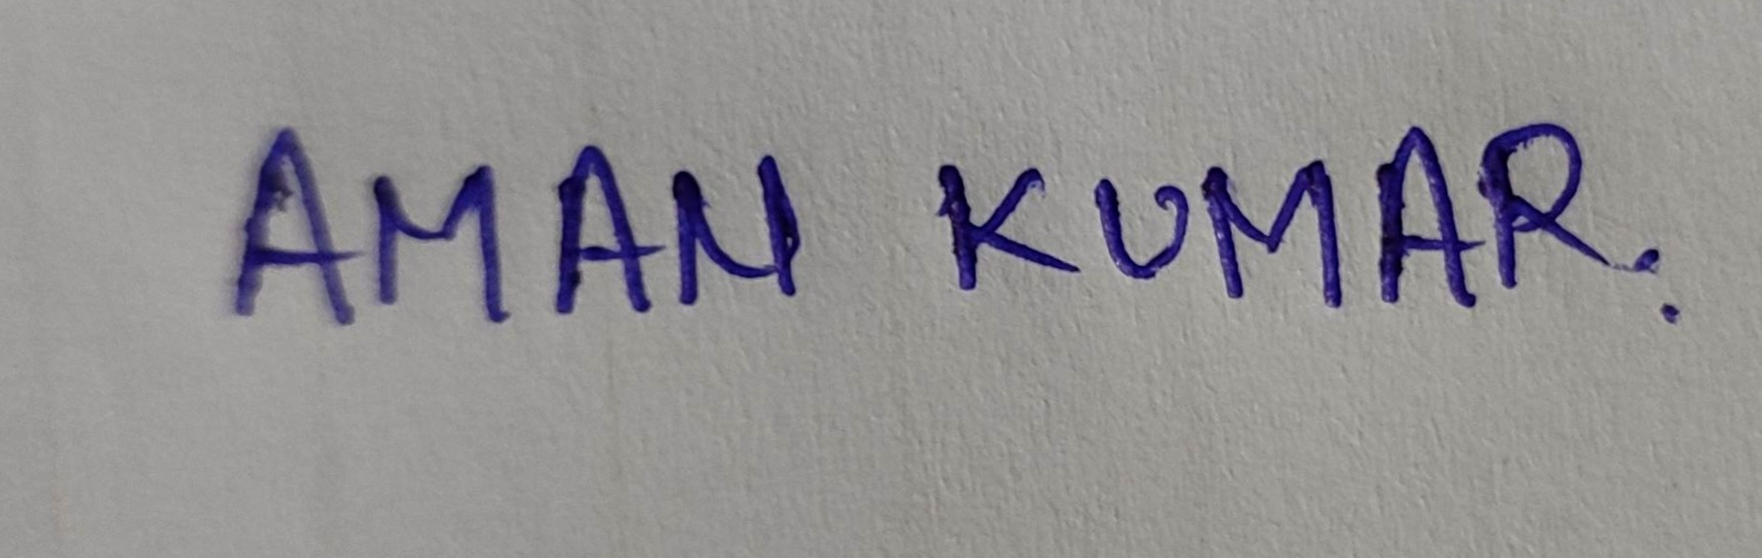 AMAN KUMAR.